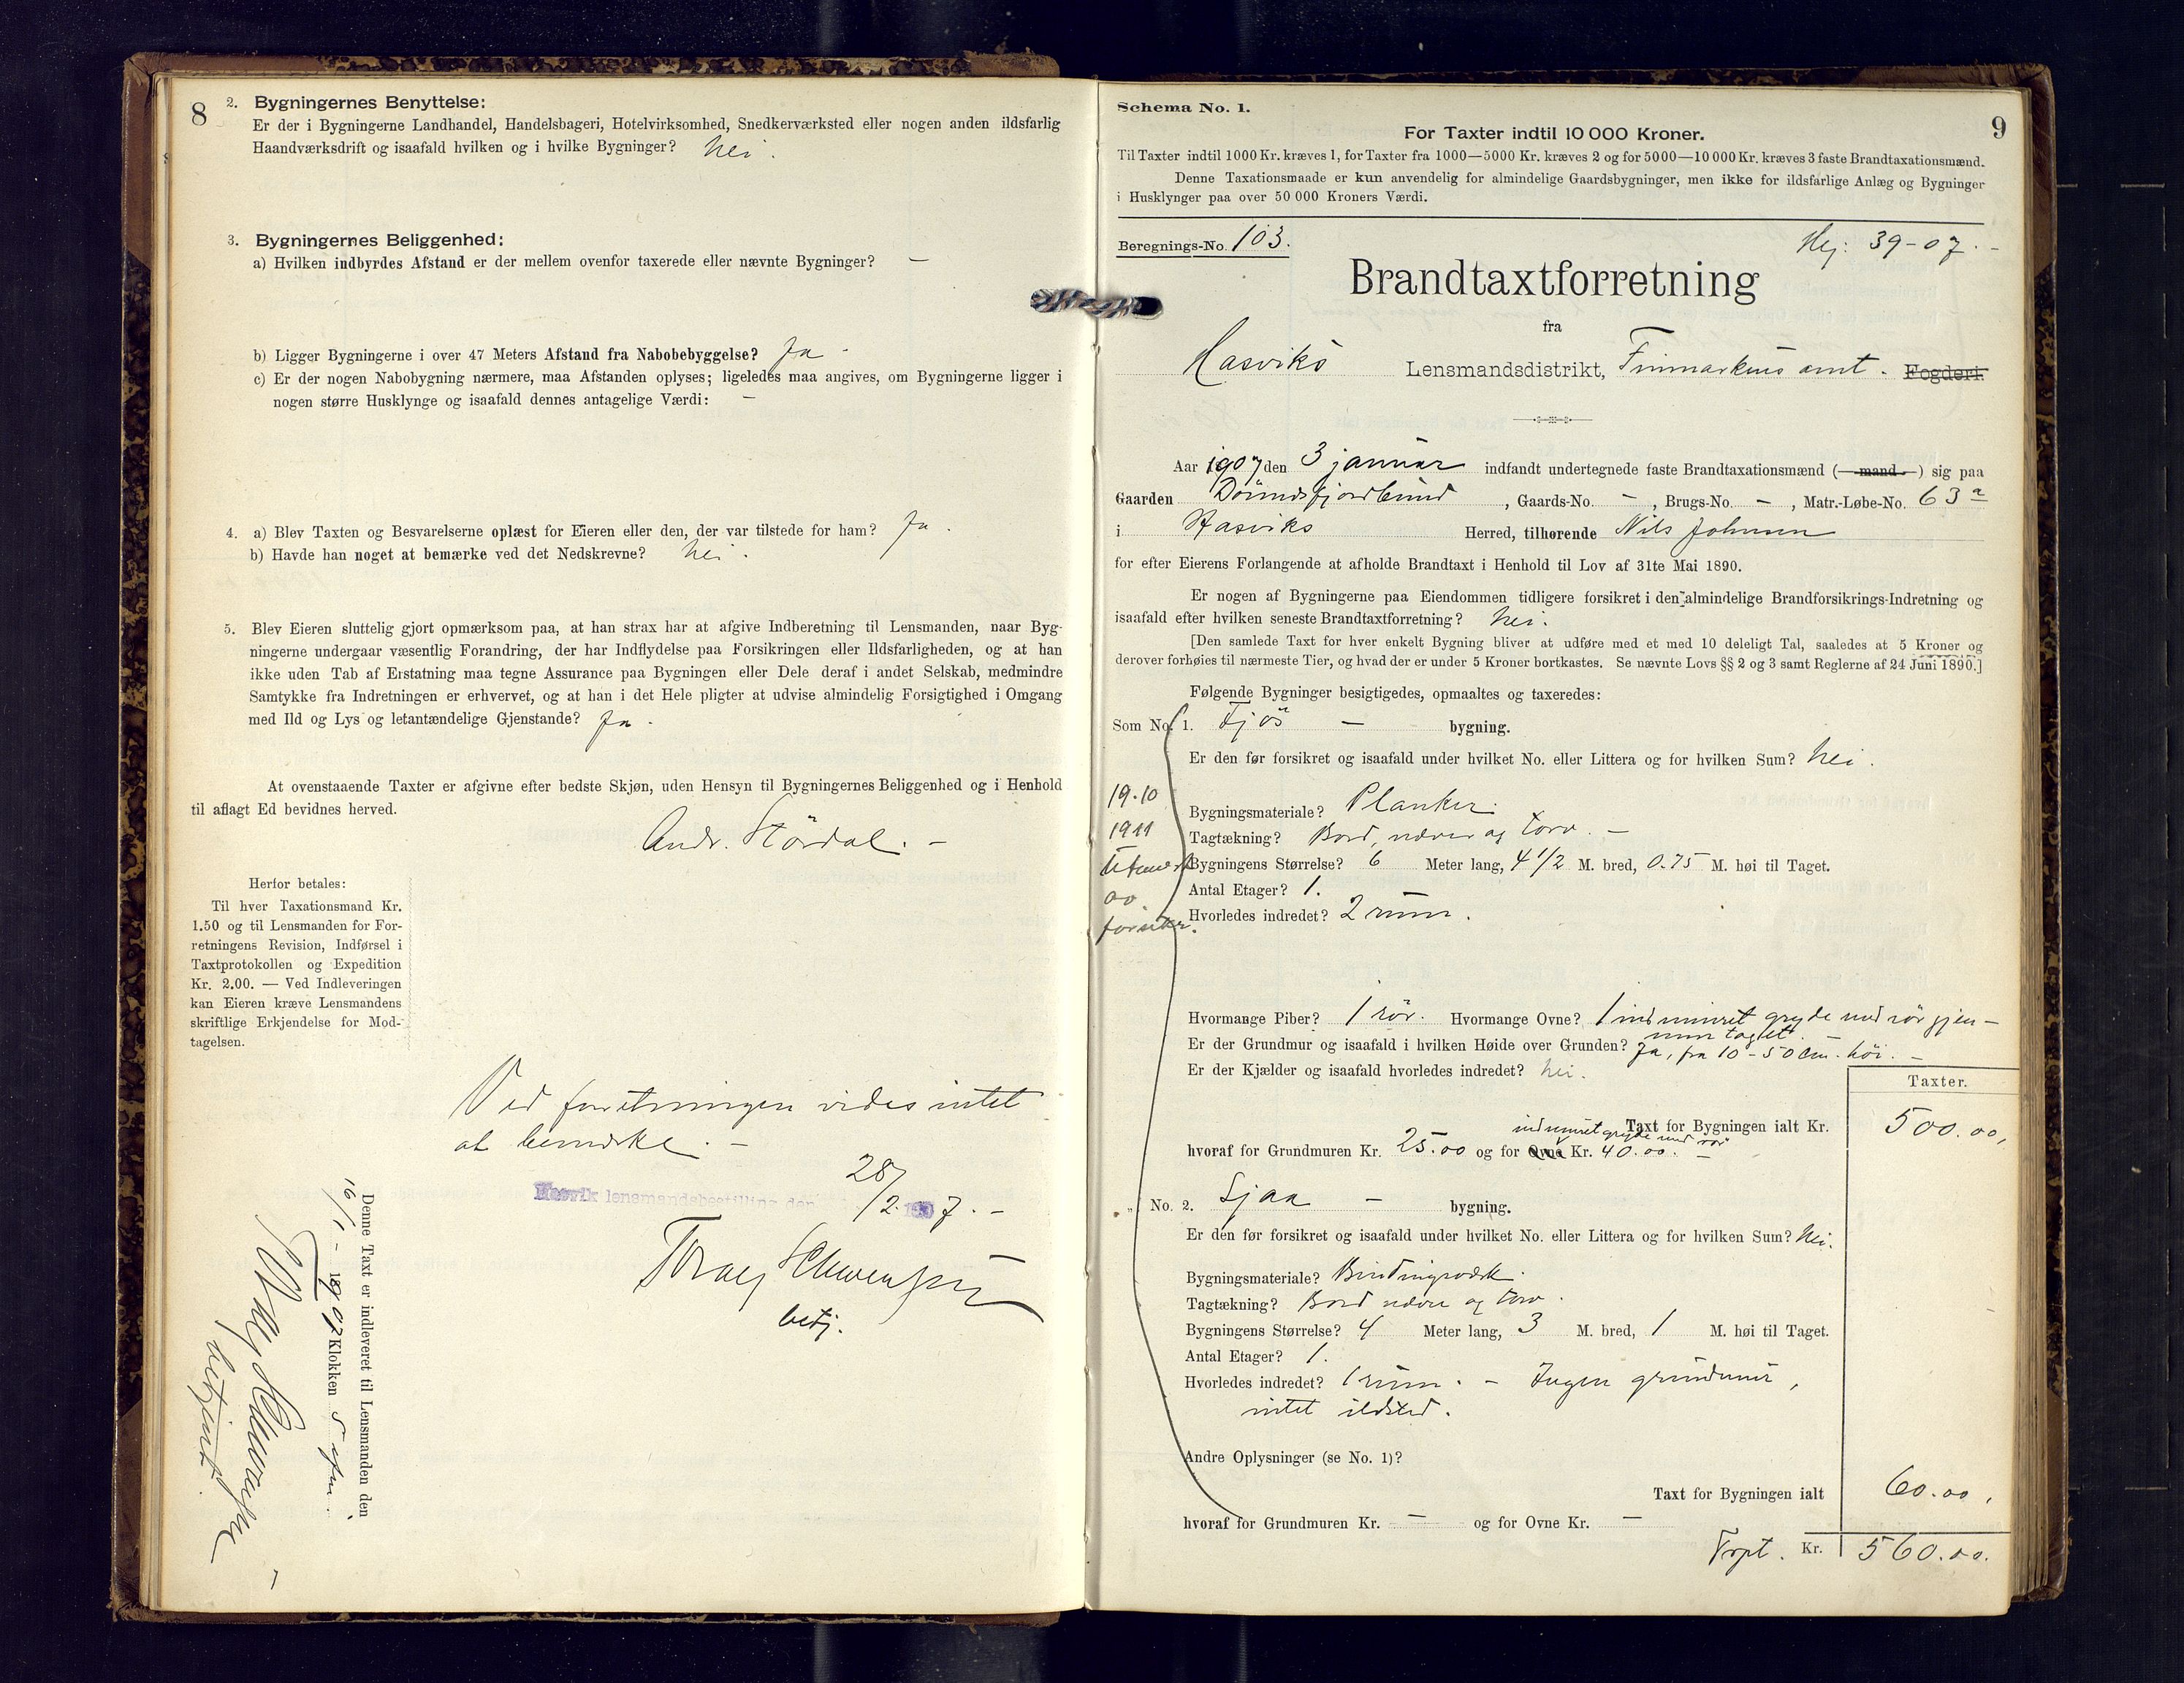 8
2. Bygningernes Benyttelse:
Er der i Bygningerne Landhandel, Handelsbageri, Hotelvirksomhed, Snedkerværksted eller nogen anden ildsfarlig
Haandværksdrift og isaafald hvilken og i hvilke Bygninger? Nei.
3. Bygningernes Beliggenhed:
a) Hvilken indbyrdes Afstand er der mellem ovenfor taxerede eller nævnte Bygninger? —
b) Ligger Bygningerne i over 47 Meters Afstand fra Nabobebyggelse? Ja.
c) Er der nogen Nabobygning nærmere, maa Afstanden oplyses; ligeledes maa angives, om Bygningerne ligger i
nogen større Husklynge og isaafald dennes antagelige Værdi: —
4. a) Blev Taxten og Besvarelserne oplæst for Eieren eller den, der var tilstede for ham? Ja.
b) Havde han noget at bemærke ved det Nedskrevne? Nei.
5. Blev Eieren sluttelig gjort opmærksom paa, at han strax har at afgive Indberetning til Lensmanden, naar Byg-
ningerne undergaar væsentlig Forandring, der har Indflydelse paa Forsikringen eller Ildsfarligheden, og at han
ikke uden Tab af Erstatning maa tegne Assurance paa Bygningen eller Dele deraf i andet Selskab, medmindre
Samtykke fra Indretningen er erhvervet, og at han i det Hele pligter at udvise almindelig Forsigtighed i Omgang
med Ild og Lys og letantændelige Gjenstande? Ja.
At ovenstaaende Taxter er afgivne efter bedste Skjøn, uden Hensyn til Bygningernes Beliggenhed og i Henhold
til aflagt Ed bevidnes herved.
Andr. Stördal. —
Herfor betales:
Til hver Taxationsmand Kr.
1.50 og til Lensmanden for For-
retningens Revision, Indførsel i
Taxtprotokollen og Expedition
Kr. 2.00. — Ved Indleveringen
kan Eieren kræve Lensmandens
skriftlige Erkjendelse for Mod-
tagelsen.
Ved forretningen vides intet
at bemærke. —
Hasvik lensmandsbestilling den 28/2. 1907. —
betj.
Denne Taxt er indleveret til Lensmanden den
16/1 - 1907 Klokken 5 efm.
betjent.
9
Schema No. 1.
For Taxter indtil 10 000 Kroner.
Til Taxter indtil 1000 Kr. kræves 1, for Taxter fra 1000—5000 Kr. kræves 2 og for 5000—10 000 Kr. kræves 3 faste Brandtaxationsmænd.
Denne Taxationsmaade er kun anvendelig for almindelige Gaardsbygninger, men ikke for ildsfarlige Anlæg og Bygninger
i Husklynger paa over 50 000 Kroners Værdi.
Beregnings-No. 103.
Hej: 39-07. -
Brandtaxtforretning
fra
Hasviks Lensmandsdistrikt, Finmarkens amt. Fogderi.
Aar 1907 den 3 januar indfandt undertegnede faste Brandtaxationsmænd (mand) sig paa
Gaarden Dönnesfjordbund, Gaards-No. —, Brugs-No. —, Matr.-Løbe-No. 63 a
i Hasviks Herred, tilhørende Nils Johnsen
for efter Eierens Forlangende at afholde Brandtaxt i Henhold til Lov af 31te Mai 1890.
Er nogen af Bygningerne paa Eiendommen tidligere forsikret i den almindelige Brandforsikrings-Indretning og
isaafald efter hvilken seneste Brandtaxtforretning? Nei.
[Den samlede Taxt for hver enkelt Bygning bliver at udføre med et med 10 deleligt Tal, saaledes at 5 Kroner og
derover forhøies til nærmeste Tier, og hvad der er under 5 Kroner bortkastes. Se nævnte Lovs §§ 2 og 3 samt Reglerne af 24 Juni 1890.]
Følgende Bygninger besigtigedes, opmaaltes og taxeredes:
Som No. 1. Fjös — bygning.
Er den før forsikret og isaafald under hvilket No. eller Littera og for hvilken Sum? Nei.
19.10
1911
Bygningsmateriale? Planker.
Tagtækning? Bord, næver og torv. —
Bygningens Størrelse? 6 Meter lang, 4 1/2 M. bred, 0.75 M. høi til Taget.
Antal Etager? 1.
Hvorledes indredet? 2 rum.
Hvormange Piber? 1 rör. Hvormange Ovne? 1 indmuret gryde med rör gjen-
nem taget. —
Er der Grundmur og isaafald i hvilken Høide over Grunden? Ja, fra 10 - 50 cm. höi. —
Er der Kjælder og isaafald hvorledes indredet? Nei.
Taxter.
Taxt for Bygningen ialt Kr. 500.00,
indmuret gryde med rör
hvoraf for Grundmuren Kr. 25.00 og for Ovne Kr. 40.00. —
„ No. 2. Sjaa — bygning.
Er den før forsikret og isaafald under hvilket No. eller Littera og for hvilken Sum? Nei.
Bygningsmateriale? Bindingsværk.
Tagtækning? Bord næver og torv.
Bygningens Størrelse? 4 Meter lang, 3 M. bred, 1 M. høi til Taget.
Antal Etager? 1.
Hvorledes indredet? 1 rum. — Ingen grundmur,
intet ildsted.
Andre Oplysninger (se No. 1)?
Taxt for Bygningen ialt 60.00,
hvoraf for Grundmuren Kr. — og for Ovne Kr. —
Trpt. Kr. 560.00.